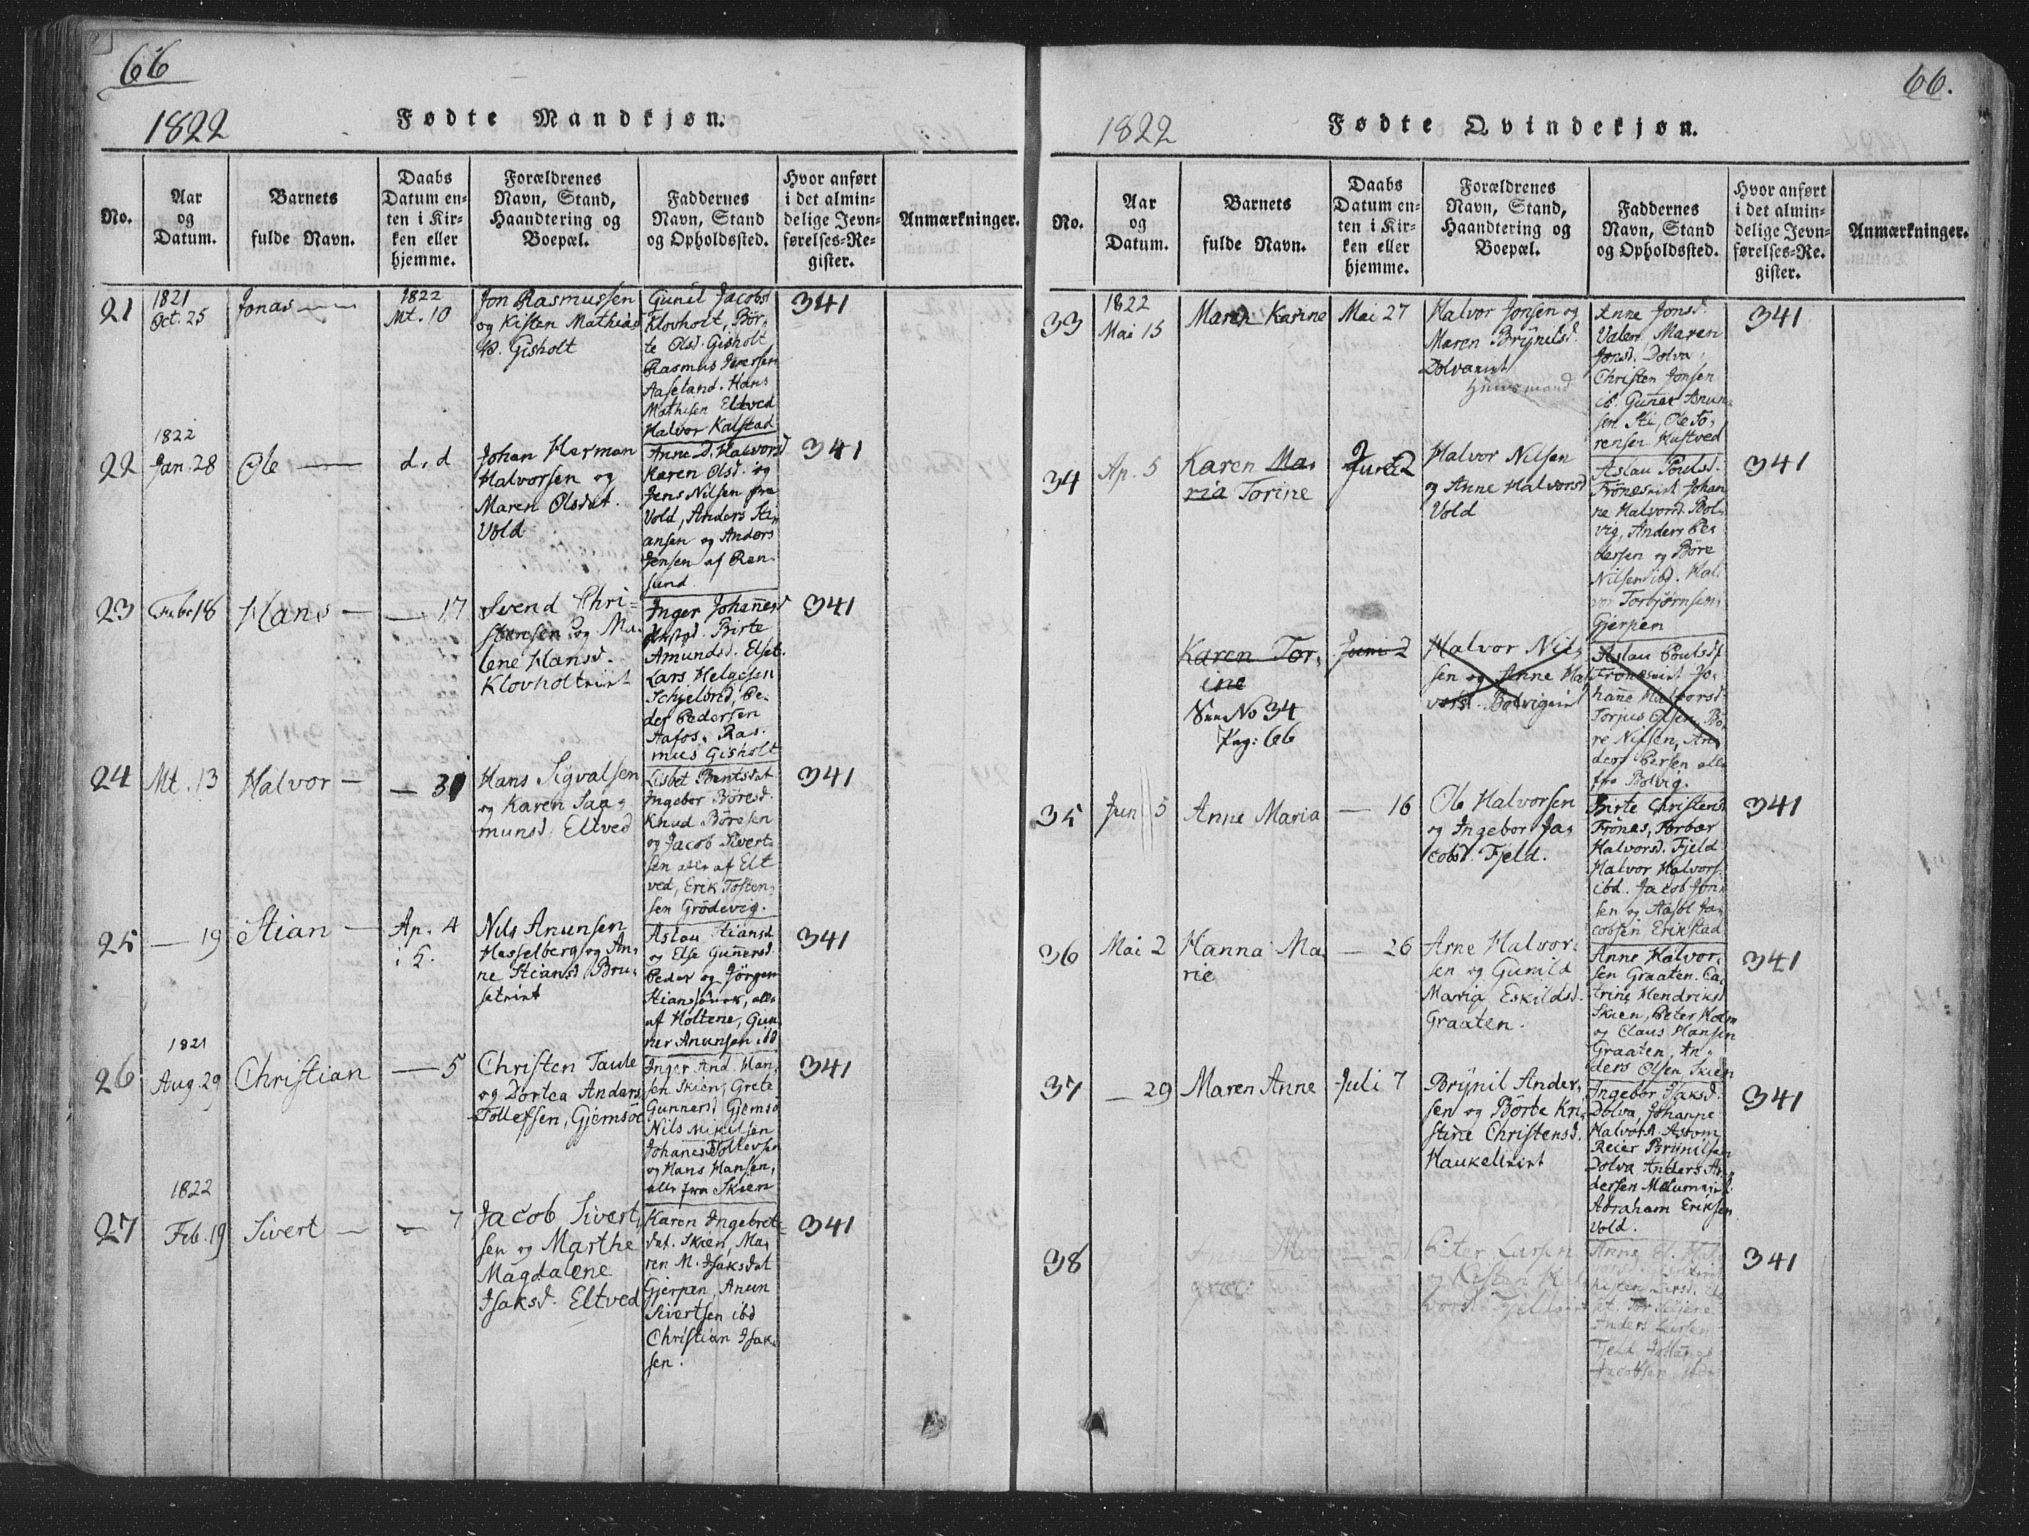 66
1822
Fødte Mandkjøn.
No.
Aar
og
Datum.
Barnets
fulde Navn.
Daabs
Datum en-
ten i Kir-
ken eller
hjemme.
Forældrenes
Navn, Stand,
Haandtering og
Boepæl.
Faddernes
Navn, Stand
og Opholdssted.
Hvor anført
i det almin-
delige Jevn-
førelses-Re-
gister.
Anmærkninger.
21
1821
Oct. 25
Jonas
1822
Mt. 10
Jon Rasmussen
og Kisten Mathias
Gisholt
Gunil Jacobsd
Klovholt, Bör-
te Olsd. Gisholt
Rasmus Iversen
Aaseland. Hans
Mathisen Eltved
Halvor Kalstad
341
22
1822
Jan. 28
Ole
d. d
Johan Herman
Halvorsen og
Maren Olsdat.
Vold
Anne D. Halvorsd
Karen Olsd. og
Jens Nilsen fra
Vold, Anders Sti-
ansen og Anders
Jensen af Ren-
sund
341
23
Febr 18
Hans
— 17
Svend Chri-
stensen og Ma-
lene Hansd.
Klovholteiet
Inger Johannesd
Birte
Amundsd. Elset.
Lars Helgesen
Pe-
der Pedersen
Aafos. Ras-
mus Gisholt
341
24
Mt. 13
Halvor
— 31
Hans Sigvalsen
og Karen Saa-
munsd. Eltved
Lisbet Bentsdat
Ingebor Böresd.
Knud Böresen
og Jacob Sivert-
sen alle af Elt-
ved, Erik Tosten-
sen Grödevig.
341
25
— 19
Stian
Ap. 4
i K.
Nils Anunsen
Hesselberg og An-
ne Stiansd. Bru-
seteiet
Aslau Stiansd
og Else Gunnersd.
Peder og Jörgen
Stiansönner, alle
af Holtene, Gun-
ner Anunsen ibd
341
26
1821
Aug. 29
Christian
— 5
Christen Taule
og Dortea Anders
Tollefsen, Gjemsöe
Inger And. Han-
sen Skien, Grete
Gunnersd Gjemsö
Nils Mikelsen
Johannes Tollevsen
og Hans Hansen,
alle fra Skien
341
27
1822
Feb. 19
Sivert
— 7
Jacob Sivert-
sen og Marthe
Magdalene
Isaksd. Eltved
Karen Ingebret-
dat. Skien, Ma-
ren M. Isaksdat
Gjerpen, Anun
Sivertsen ibd
Christian Isak-
sen.
341
66.
1822
Fødte Qvindekjøn.
No.
Aar
og
Datum.
Barnets
fulde Navn.
Daabs
Datum en-
ten i Kir-
ken eller
hjemme.
Forældrenes
Navn, Stand,
Haandtering og
Boepæl.
Faddernes
Navn, Stand
og Opholdssted.
Hvor anført
i det almin-
delige Jevn-
førelses-Re-
gister.
Anmærkninger.
33
1822
Mai 15
Maren Karine
Mai 27
Halvor Jonsen og
Maren Brÿnilsd.
Dolvaeiet
Huusmand
Anne Jonsd.
Valen Maren
Jonsd. Dolva,
Christen Jonsen
ib. Gunner Anun-
sen Sti, Ole To-
rensen Kustved
341
34
Ap. 5
Karen Ma-
ria Torine
Juni 2
Halvor Nilsen
og Anne Halvorsd
Vold
Aslau Poulsd.
Frönæseiet Johan-
ne Halvorsd. Bol-
vig, Anders Pe-
dersen og Böre
Nilsen ibd. Hal-
vor Torbjörnsen
Gjerpen
341
Karen Tor-
ine
See No 34
Pag: 66
Juni 2
Halvor Nil-
sen og Anne Hal-
vorsd. Bolvigeiet
Aslau Poulsd
Frönæseiet Jo-
hanne Halvorsd.
Torjus Olsen, Bö-
re Nilsen, An-
ders Persen alle
fra Bolvig.
35
Jun 5
Anne Maria
— 16
Ole Halvorsen
og Ingebor Ja-
cobsd. Fjeld.
Birte Christensd
Frönæs, Torbør
Halvorsd. Fjeld
Halvor Halvors.
ibd. Jacob Jon-
sen og Aasol Ja-
cobsen Erikstad
341
36
Mai 2
Hanna Ma-
rie
— 26
Arne Halvor-
sen og Gunild
Maria Eskildsd.
Graaten.
Anne Halvor-
sen Graaten. Ca-
trine Hendriksd
Skien, Peter Holm
og Claus Hansen
Graaten, An-
ders Olsen Skien
341
37
— 29
Maren Anne
Juli 7
Brÿnil Ander-
sen og Börte Kri-
stine Christensd.
Haukelieiet
Ingebor Isaksd.
Dolva, Johanne
Halvorsd. Aasom
Reier Brÿnilsen
Dolva Anders An-
dersen Melumeiet.
Abraham Eriksen
Vold.
341
38
Anne
Peter Larsen
og Kisten
Anders Larsen
Fjeld
Jacobsen
341